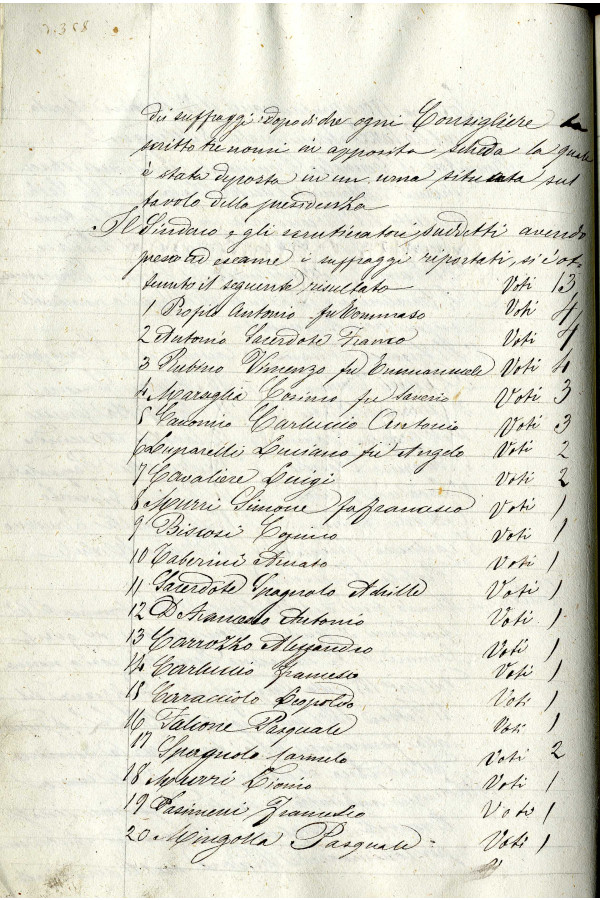 dei suffragi dopo di che ogni Consigliere ha
scritto tre nomi in apposita scheda la quale
è stata deposta in un urna situata sul
tavolo della presidenza
Il Sindaco e gli scrutinatori suddetti avendo
preso ad esame i suffragi riportati, si è ot
tenuto il seguente risultato Voti 13
1 Antonio fu Tommaso Voti 4
2 Antonio Sacerdote Franco Voti 4
3 Rubino Vincenzo fu Emmanuele Voti 4
4 Maraglia Cosimo fu Saverio Voti 3
5 Giacomo Carluccio Antonio Voti 3
6 Luparelli Luciano fu Angelo Voti 2
7 Cavaliere Luigi Voti 2
8 Murri Simone fu Francesco Voti 1
9 Biscosi Cosimo Voti 1
10 Taberini Amato Voti 1
11 Sacerdote Spagnolo Achille Voti 1
12 D'Amensso Antonio Voti 1
13 Carrozzo Alessandro Voti 1
14 Carluccio Francesco Voti 1
15 Caracciolo Leopoldo Voti 1
16 Falcone Pasquale Voti 1
17 Spagnolo Carmelo Voti 2
18 Murri Voti 1
19 Pasimeni Francesco Voti 1
20 Mingolla Pasquale Voti 1